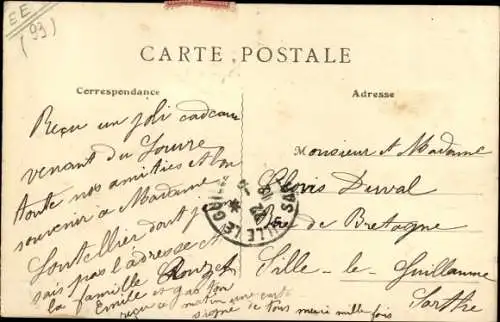 EE
(93)
CARTE POSTALE
Correspondance
Adresse
Reçu un joli cadeau
venant du Louvre
toute nos amitiés et bon
souvenir a Madame
dont j
sais pas l'adresse et
la famille Rouzet
Emile et gaston
reçu ce matin une carte
signé de tous merci mille fois
Monsieur et Madame
Clovis Duval
rue de Bretagne
Sille-le-Guillaume
Sarthe
SILLE LE GUIL
22